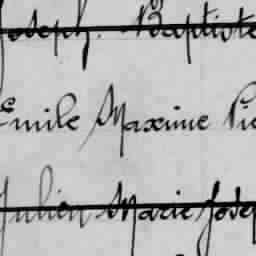 Joseph. Baptiste
Emile Maxime Pie
Julien Marie Josep